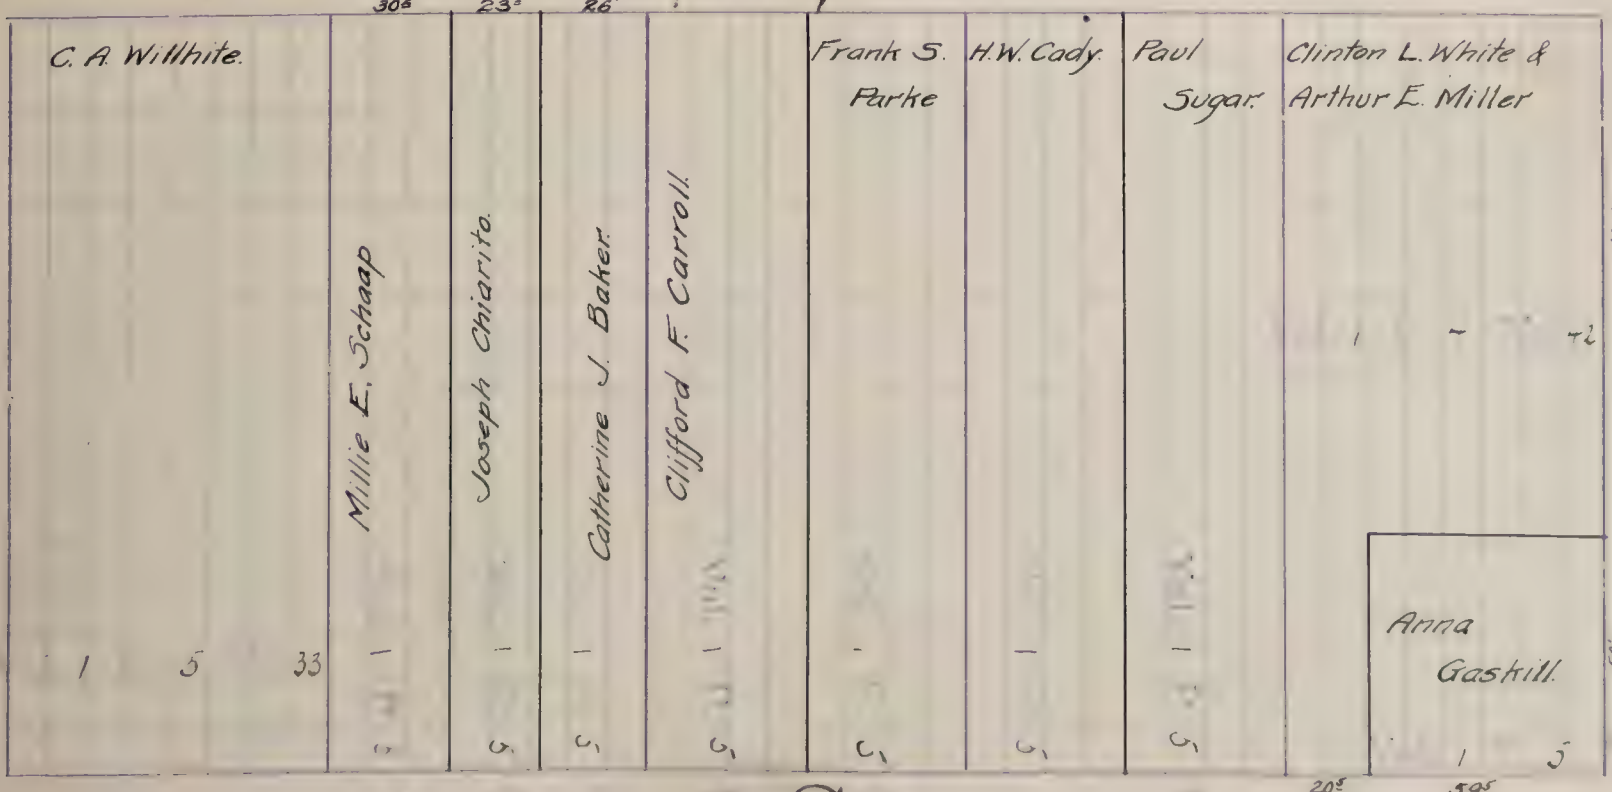 30⁵ 23⁵ 26
C. A. Willhite.
Millie E. Schaap
Joseph Chiarito.
Catherine J. Baker.
Clifford F. Carroll.
Frank S.
Parke
H.W. Cady.
Paul
Sugar.
Clinton L. White &
Arthur E. Miller
Anna
Gaskill.
1 5 33
1 5
1 5
1 5
1 5
1 5
1 5
1 5
1 5
20⁵ 59⁵